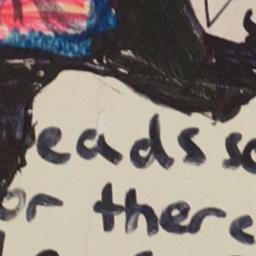 eads so
or there